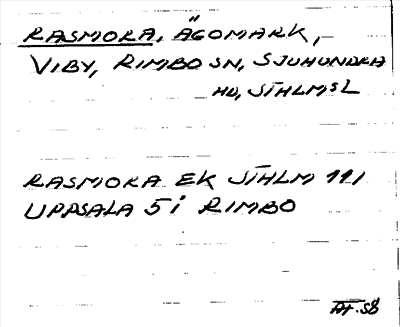 RASMORA, ÄGOMARK,
VIBY, RIMBO SN, SJUHUNDRA
HD, STHLMS L
RASMORA EK STHLM 111
UPPSALA 5i RIMBO
AH-58